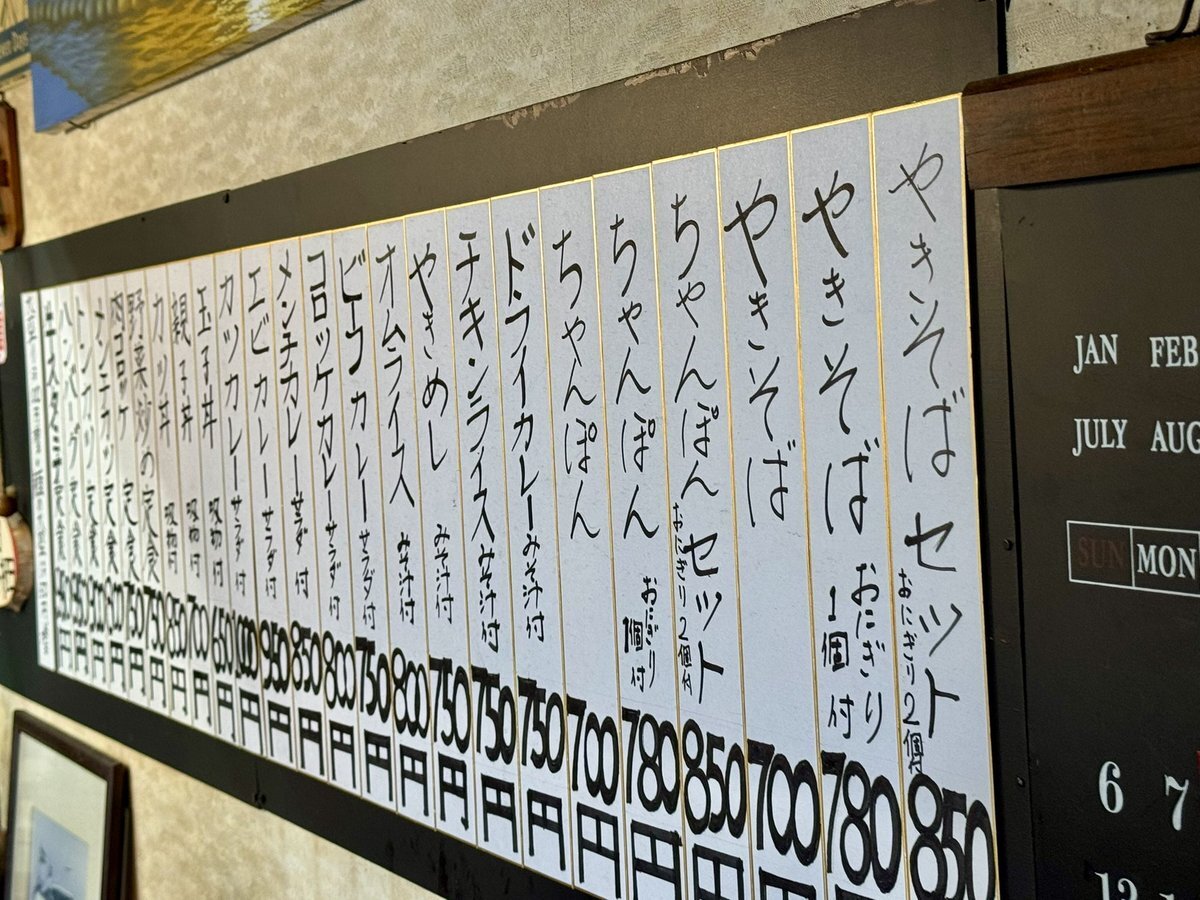 やきそばセット おにぎり2個付 850
やきそば おにぎり1個付 780
やきそば 700円
ちゃんぽんセット おにぎり2個付 850円
ちゃんぽん おにぎり1個付 780円
ちゃんぽん 700円
ドライカレー みそ汁付 750円
チキンライス みそ汁付 750円
やきめし みそ汁付 750円
オムライス みそ汁付 800円
ビーフカレー サラダ付 750円
コロッケカレー サラダ付 800円
メンチカレー サラダ付 850円
エビカレー サラダ付 950円
カツカレー サラダ付 1000円
玉子丼 吸物付 650円
親子丼 吸物付 700円
カツ丼 吸物付 850円
野菜炒めの定食 750円
肉コロッケ定食 750円
メンチカツ定食 800円
トンカツ定食
ハンバーグ定食
JAN FEB
JULY AUG
SUN MON
6 7
13